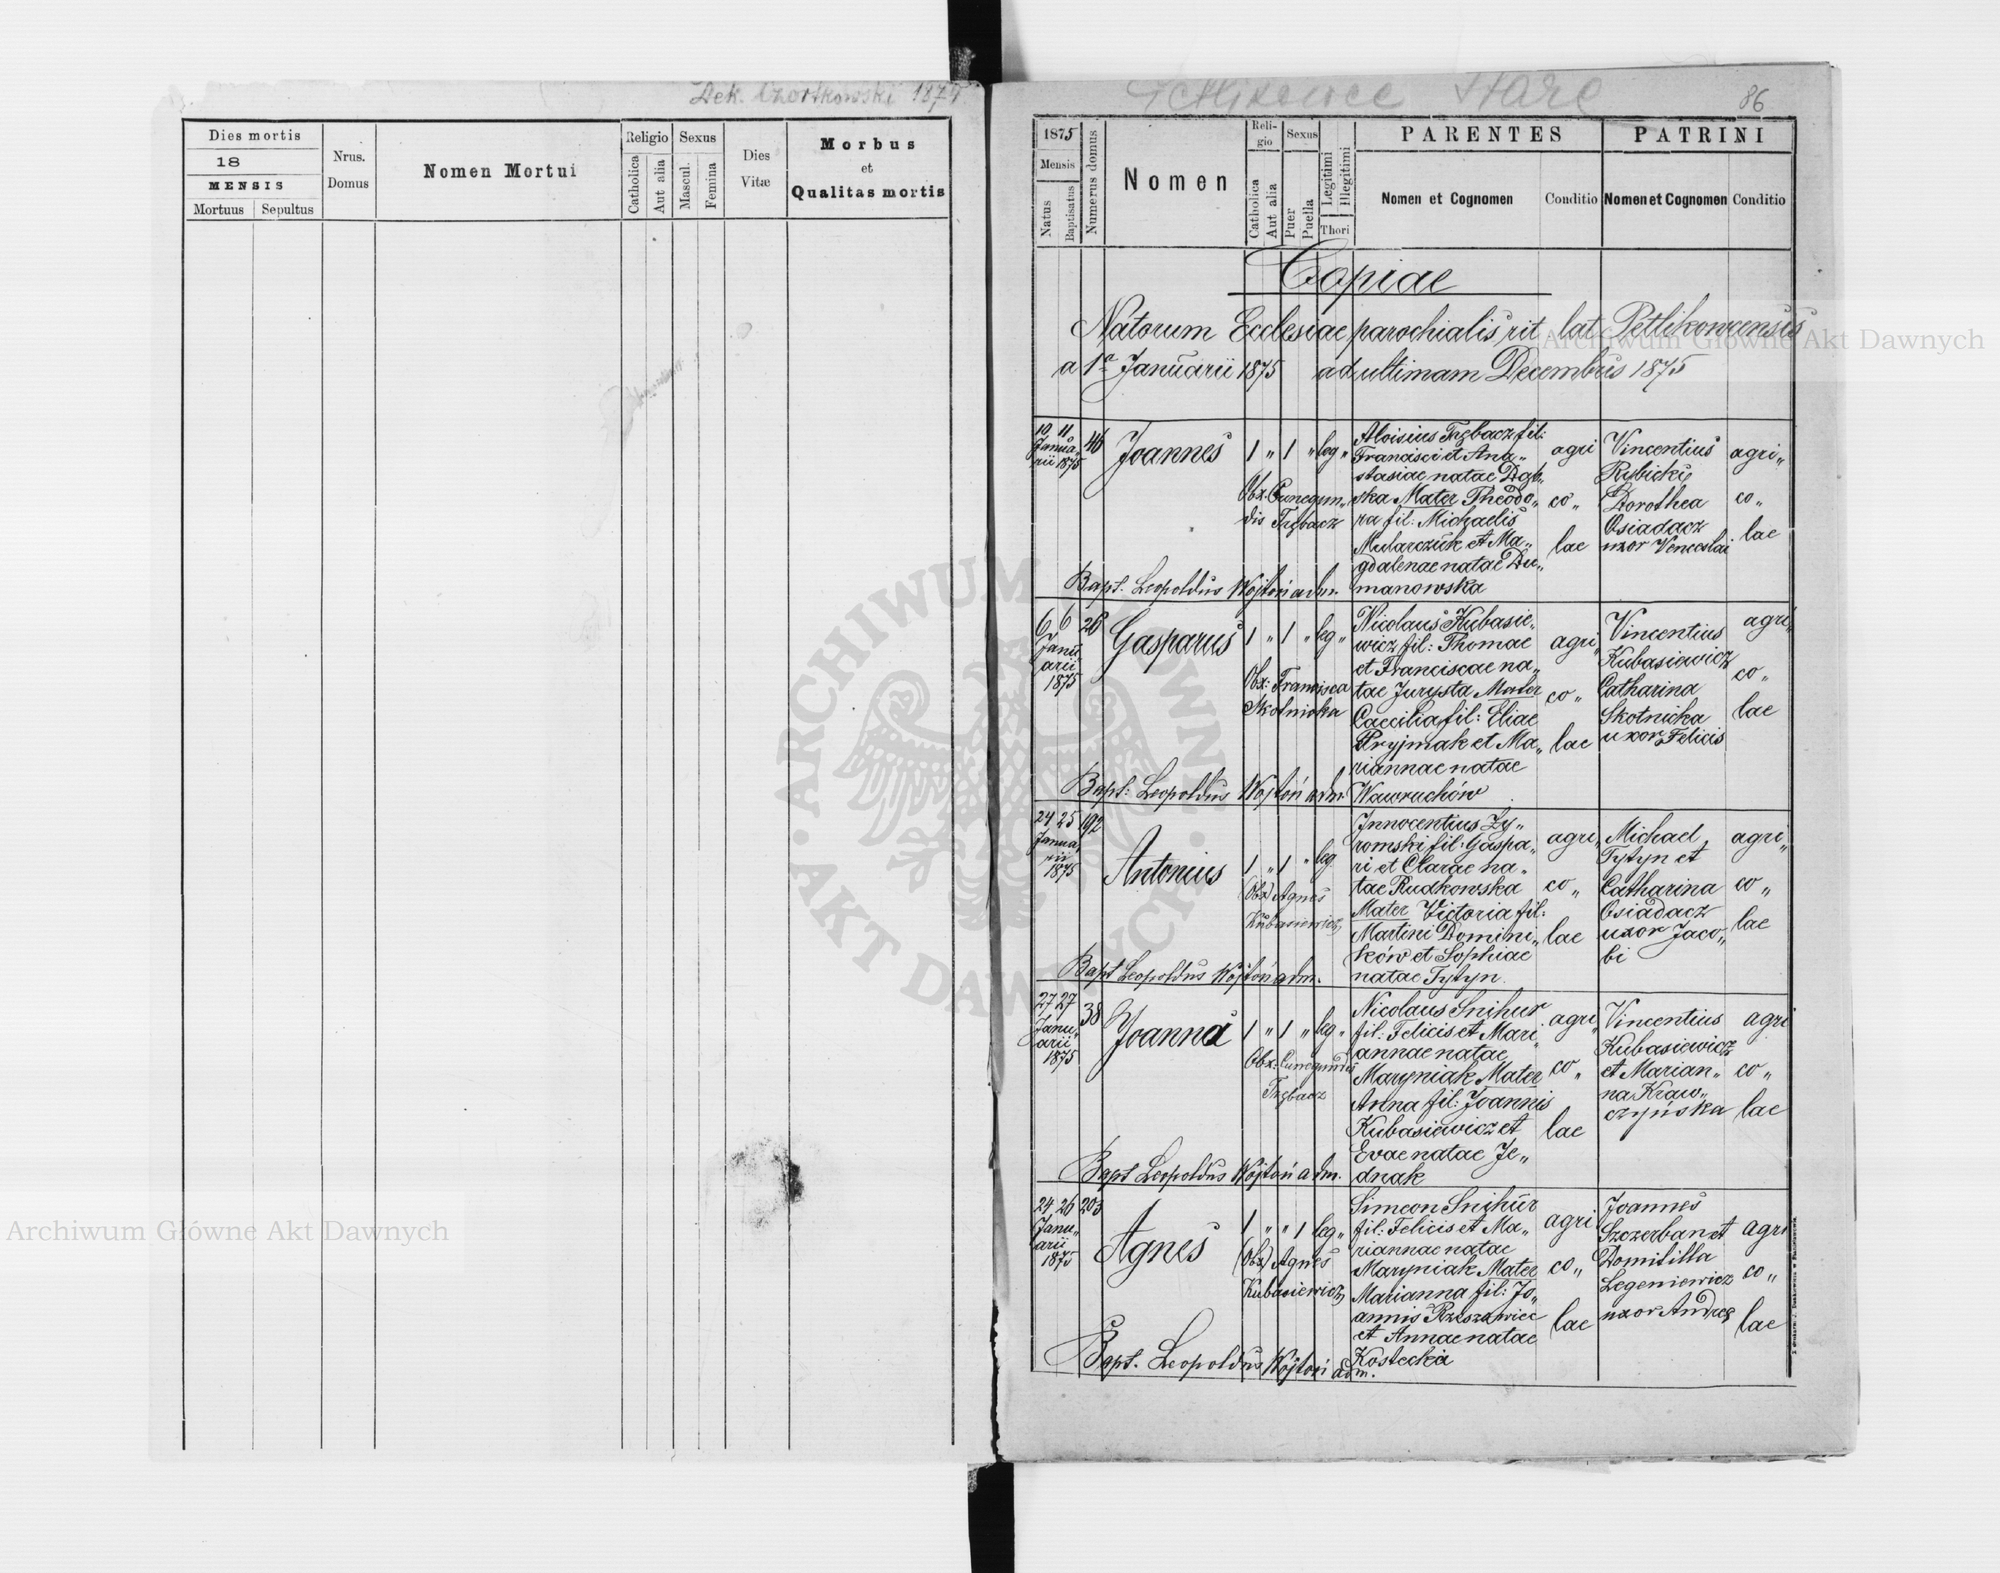 Dek. Czortkowski 187
Dies mortis
18
MENSIS
Mortuus
Sepultus
Nrus.
Domus
Nomen Mortui
Religio
Catholica
Aut alia
Sexus
Mascul.
Femina
Dies
Vitæ
Morbus
et
Qualitas mortis
Petlikowce Stare
86
1875
Mensis
Natus
Baptisatus
Numerus domus
Nomen
Reli-
gio
Catholica
Aut alia
Sexus
Puer
Puella
Legitimi
Illegitimi
Thori
PARENTES
Nomen et Cognomen
Conditio
PATRINI
Nomen et Cognomen
Conditio
Copiae
Natorum Ecclesiae parochialis rit lat Petlikowcensis
a 1a Januarii 1875 ad ultimam Decembris 1875
10 11
Janua„
rii 1875
46
Joannes
1 „ 1 „ leg „
Obx. Cunegun„
dis Trębacz
Aloisius Trębacz fil:
Francisci et Ana„
stasiae natae Dąb„
ska Mater Theodo„
ra fil: Michaelis
Mularczuk et Ma„
gdalenae natae Du„
manowska
agri
co„
lae
Vincentius
Rybicki
Dorothea
Osiadacz
uxor Venceslai
agri„
co„
lae
Bapt. Leopoldus Wojtoń adm.
6 6
Janu
arii
1875
26
Gasparus
1 „ 1 „ leg „
Obx: Francisca
Skotnicka
Nicolaus Kubasie„
wicz fil: Thomae
et Franciscae na„
tae Jurysta Mater
Caecilia fil: Eliae
Pryjmak et Ma„
riannae natae
Wawruchów
agri„
co„
lae
Vincentius
Kubasiewicz
Catharina
Skotnicka
uxor Felicis
agri„
co„
lae
Bapt: Leopoldus Wojtoń adm.
24 25
Janua„
rii
1875
192
Antonius
1 „ 1 „ leg
(Obx) Agnes
Kubasiewicz
Innocentius Zy„
romski fil: Gaspa„
ri et Clarae na„
tae Rudkowska
Mater Victoria fil:
Martini Domini„
ków et Sophiae
natae Tytyn.
agri„
co„
lae
Michael
Tytyn et
Catharina
Osiadacz
uxor Jaco„
bi
agri„
co„
lae
Bapt Leopoldus Wojtoń adm.
27 27
Janu„
arii
1875
38
Joanna
1 „ 1 „ leg „
Obx: Cunegundis
Trębacz
Nicolaus Snihur
fil: Felicis et Mari„
annae natae
Maryniak Mater
Anna fil: Joannis
Kubasiewicz et
Evae natae Je„
dnak
agri„
co„
lae
Vincentius
Kubasiewicz
et Marian„
na Kraw„
czyńska
agri
co„
lae
Bapt Leopoldus Wojtoń adm.
24 26
Janu„
arii
1875
203
Agnes
1 „ „ 1 leg „
(Obx) Agnes
Kubasiewicz
Simeon Snihur
fil: Felicis et Ma„
riannae natae
Maryniak Mater
Marianna fil: Jo„
annis Rzeszowiec
et Annae natae
Kostecka
agri
co„
lae
Joannes
Szczerban et
Domitilla
Legeniewicz
uxor Andreę
agri
co„
lae
Bapt. Leopoldus Wojtoń adm.
Archiwum Główne Akt Dawnych
Archiwum Główne Akt Dawnych
ARCHIWUM GŁÓWNE · AKT DAWNYCH ·